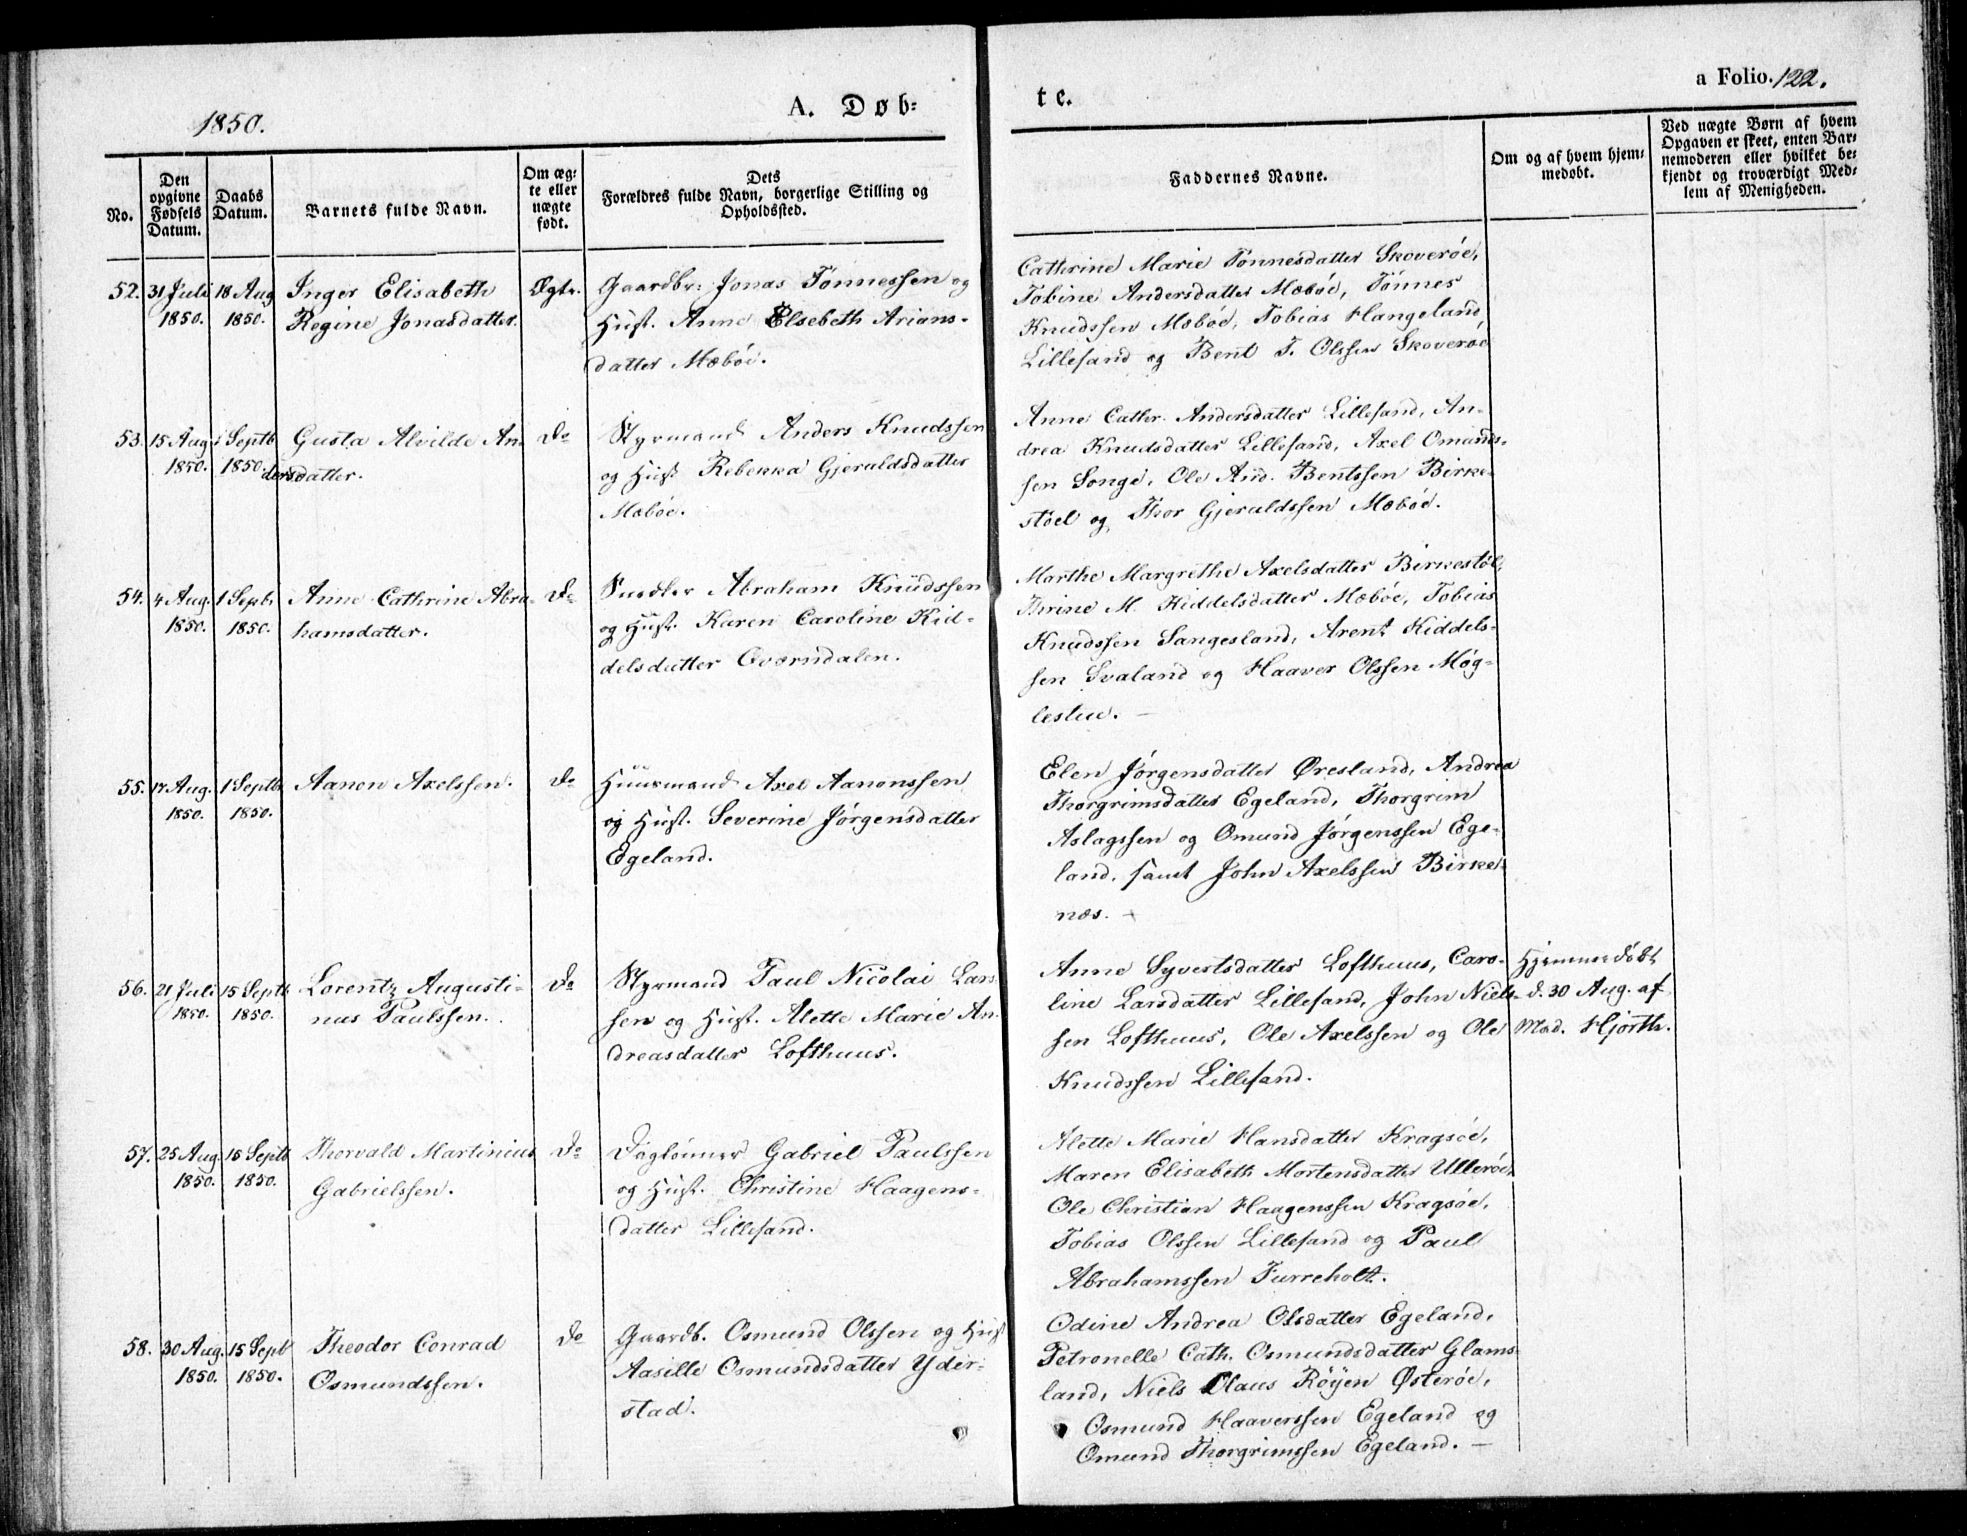 1850.
A. Døb=
te.
a Folio. 122.
No.
Den opgivne Fødsels Datum.
Daabs Datum.
Barnets fulde Navn.
Om æg= te eller nægte født.
Dets Forældres fulde Navn, borgerlige Stilling og Opholdssted.
Faddernes Navne.
Om og af hvem hjem= medøbt.
Ved nægte Børn af hvem Opgaven er skeet, enten Bar= nemoderen eller hvilket be= kjendt og troværdigt Med= lem af Menigheden.
52. 31 Juli 1850. 18 Aug 1850.
Inger Elisabeth
Regine Jonasdatter.
Ægte.
Gaardbr: Jonas Tønnessen og
Hust. Anne Elsebeth Arians-
datter Mæbøe.
Cathrine Marie Tønnesdatter Skoverøe,
Tobine Andersdatter Mæbøe, Tönnes
Knudssen Mæbøe, Tobias Hangeland
Lillesand og Bent T. Olssen Skoverøe
53. 15 Aug 1850. 1 Septb 1850.
Gusta Alvilde An-
dersdatter.
Do
Styrmand Anders Knudssen
og Hust Rebekka Gjeruldsdatter
Mæbøe.
Anne Cathr. Andersdatter Lillesand, An-
drea Knudsdatter Lillesand, Axel Omunds-
sen Songe, Ole And. Bentssen Birke-
støel og Thor Gjeruldssen Mæbøe.
54. 4 Aug. 1850. 1 Septb. 1850.
Anne Cathrine Abra-
hamsdatter.
Do
Snedker Abraham Knüdssen
og Hust. Karen Caroline Kid-
delsdatter Qværndalen.
Marthe Margrethe Axelsdatter Birkestøl,
Thrine M. Kiddelsdatter Mæbøe, Tobias
Knudssen Sangesland, Arent Kiddels-
sen Svaland og Haaver Olssen Møg-
lestue. —
55. 17 Aug. 1850. 1 Septb 1850.
Aanon Axelssen.
Do
Huusmand Axel Aanonssen
og Hust. Severine Jørgensdatter
Egeland.
Elen Jørgensdatter Øresland, Andrea
Thorgrimsdatter Egeland, Thorgrim
Aslagssen og Omund Jørgenssen Ege-
land, samt John Axelssen Birke-
næs. +
56. 21 Juli 1850. 15 Septb 1850.
Lorentz Augusti-
nus Paulssen.
Do
Styrmand Paul Nicolai Lars-
sen og Hust. Alette Marie An-
dreasdatter Lofthuus.
Anne Syvertsdatter Lofthuus, Caro-
line Larsdatter Lillesand, John Niels-
sen Lofthuus, Ole Axelssen og Ole
Knudssen Lillesand.
Hjemmedöbt
d. 30 Aug. af
Mad. Hjorth.
57. 25 Aug. 1850. 15 Septb 1850.
Thorvald Martinius
Gabrielssen.
Do
Daglønner Gabriel Paulssen
og Hust. Christine Haagens-
datter Lillesand.
Alette Marie Hansdatter Kragsøe,
Maren Elisabeth Mortensdatter Ulleröe,
Ole Christian Haagenssen Kragsøe,
Tobias Olssen Lillesand og Paul
Abrahamssen Furreholt.
58. 30 Aug. 1850. 15 Septb 1850.
Theodor Conrad
Osmundssen.
Do
Gaardb. Osmund Olssen og Hust
Aasille Osmundsdatter Yder-
stad.
Odine Andrea Olsdatter Egeland,
Petronelle Cath. Osmundsdatter Glams-
land, Niels Claus Röyen Østerøe,
Osmund Haaverssen Egeland og
Omund Thorgrimssen Egeland. —